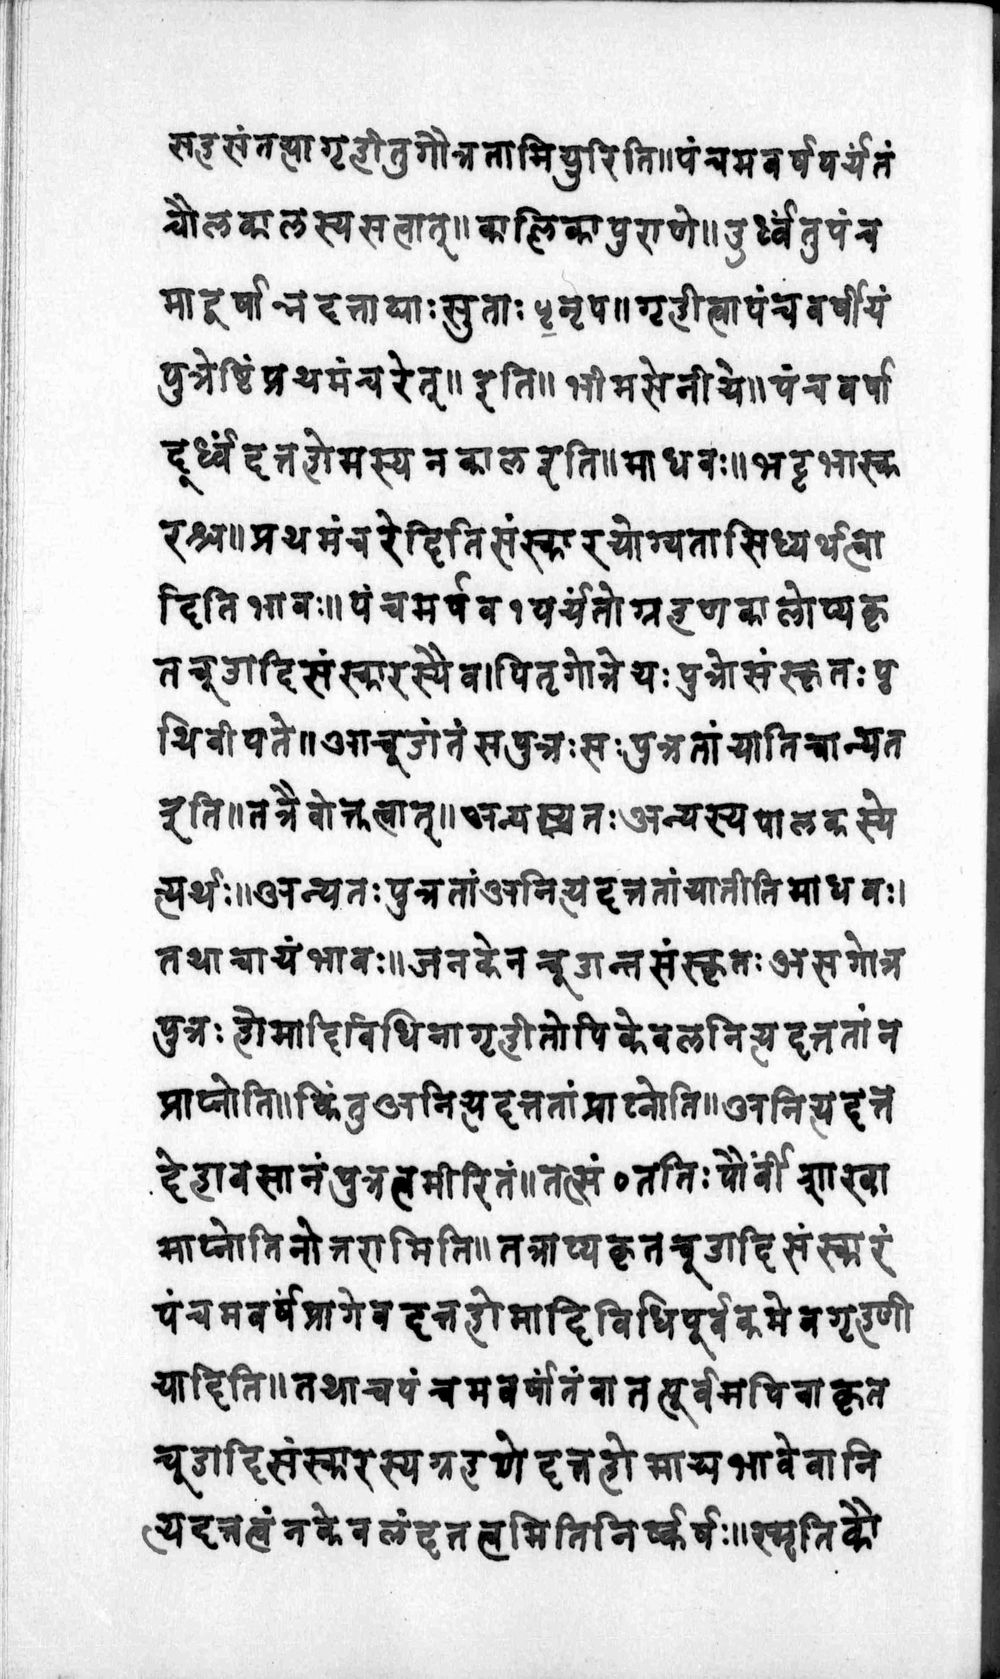 सहसंतत्यागृहीतुगौत्रतामियुरिति॥पंचमवर्षपर्यंतं
चौलकालस्यसत्वात्॥कालिकापुराणे॥उर्ध्वंतुपंच
माद्वर्षान्नदत्ताद्याःसुताः५नृप॥गृहीत्वापंचवर्षीयं
पुत्रेष्टिंप्रथमंचरेत्॥इति॥भीमसेनीये॥पंचवर्षा
दूर्ध्वंदत्तहोमस्यनकालइति॥माधवः॥भट्टभास्क
रश्च॥प्रथमंचरेदितिसंस्कारयोग्यतासिध्यर्थत्वा
दितिभावः॥पंचमर्षव१पर्यंतोग्रहणकालोप्यकृ
तचूडादिसंस्कारस्यैव।पितृगोत्रेयःपुत्रोसंस्कृतःपृ
थिवीपते॥आचूडांतंसपुत्रःसःपुत्रतांयातिचान्यत
इति॥तत्रैवोक्तत्वात्॥अन्यस्यतःअन्यस्यपालकस्ये
त्यर्थः॥अन्यतःपुत्रतांअनित्यदत्ततांयातीतिमाधवः।
तथाचायंभावः॥जनकेनचूडान्तसंस्कृतःअसगोत्र
पुत्रःहोमादिविधिनागृहीतोपिकेवलनित्यदत्ततांन
प्राप्नोति॥किंतुअनित्यदत्ततांप्राप्नोति॥अनित्यदत्ते
देहावसानंपुत्रत्वमीरितं॥तत्सं०ततिःपौर्वीशाखा
माप्नोतिनोत्तरामिति॥तत्राप्यकृतचूडादिसंस्कारं
पंचमवर्षंप्रागेवदत्तहोमादिविधिपूर्वकमेवगृह्णी
यादिति॥तथाचपंचमवर्षांतंवातत्पूर्वमपिवाकृत
चूडादिसंस्कारस्यग्रहणेदत्तहोमाद्यभावेवानि
त्यदत्तत्वंनकेवलंदत्तत्वमितिनिर्ष्कर्षः॥स्मृतिकौ